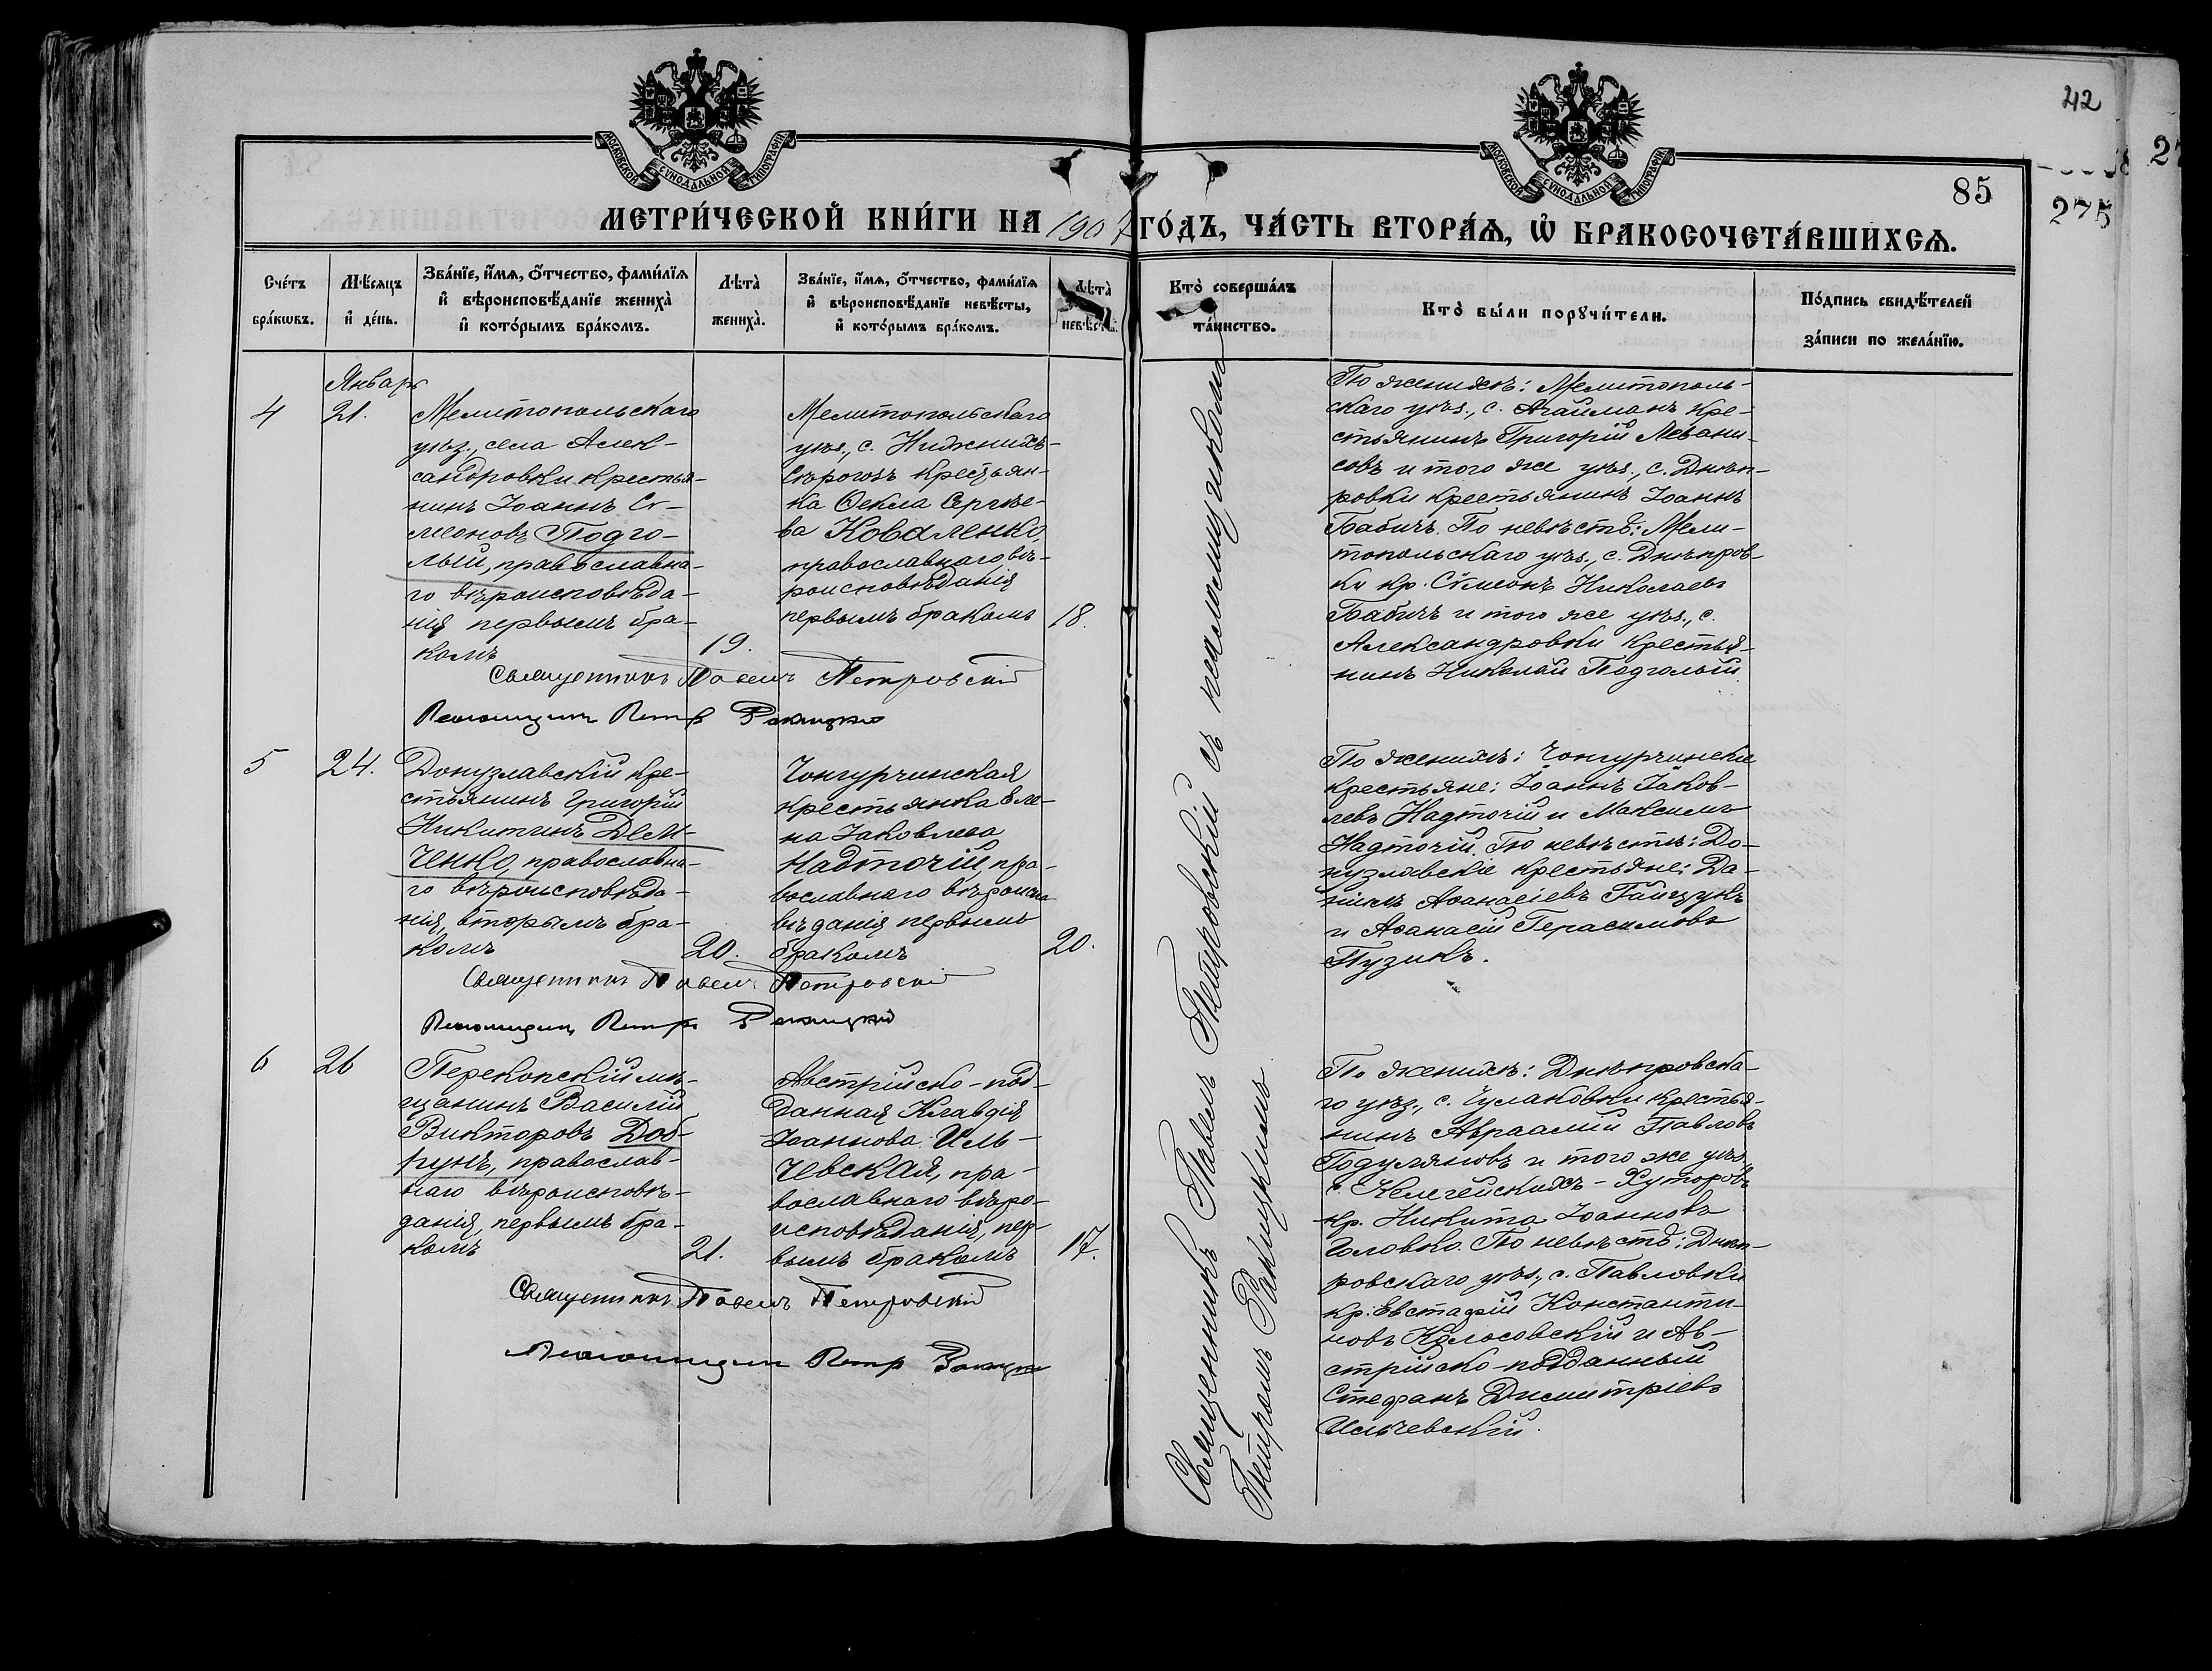 42
85
275
27
МОСКОВСКОЙ СѴНОДАЛЬНОЙ ТИПОГРАФІИ
МОСКОВСКОЙ СѴНОДАЛЬНОЙ ТИПОГРАФІИ
МЕТРИ́ЧЕСКОЙ КНИ́ГИ НА 1907 ГО́ДЪ, ЧА́СТЬ ВТОРА́Ѧ, Ѡ҆ БРАКОСОЧЕТА́ВШИХСѦ.
Сче́тъ
бра́кѡвъ.
Мѣ́сѧцъ
и҆ де́нь.
Зва́нїе, и҆́мѧ, ѻ҆́тчество, фами́лїѧ
и҆ вѣроисповѣ́данїе жениха̀
и҆ кото́рымъ бра́комъ.
Лѣта̀
жениха̀.
Зва́нїе, и҆́мѧ, ѻ҆́тчество, фами́лїѧ
и҆ вѣроисповѣ́данїе невѣ́сты,
и҆ кото́рымъ бра́комъ.
Лѣта̀
невѣ́сты.
Кто̀ соверша́лъ
та́инство.
Кто̀ бы́ли порꙋчи́тели.
По́дпись свидѣ́телей
за́писи по жела́нїю.
Январь
4
21.
Мелитопольскаго
уѣз., села Алек-
сандровки крестья-
нинъ Іоаннъ Си-
меоновъ Подго-
лый, православна-
го вѣроисповѣда-
нія первымъ бра-
комъ
19.
Мелитопольскаго
уѣз., с. Нижнихъ-
Сѣрогозъ крестьян-
ка Ѳекла Сергѣе-
ва Коваленко,
православнаго вѣ-
роисповѣданія
первымъ бракомъ
18.
Священникъ Павелъ Петровскій
Псаломщикъ Петръ Ракицкій
По женихѣ: Мелитополь-
скаго уѣз., с. Агайманъ кре-
стьянинъ Григорій Левани-
совъ и того же уѣз., с. Днѣп-
ровки крестьянинъ Іоаннъ
Бабичъ. По невѣстѣ: Мели-
топольскаго уѣз., с. Днѣпров-
ки кр. Симеонъ Николаевъ
Бабичъ и того же уѣз., с.
Александровки крестья-
нинъ Николай Подголый.
5
24.
Донузлавскій кре-
стьянинъ Григорій
Никитинъ Дем-
ченко, православна-
го вѣроисповѣда-
нія, вторымъ бра-
комъ
20.
Чонгурчинская
крестьянка Еле-
на Іаковлева
Надточій, пра-
вославнаго вѣроиспо
вѣданія первымъ
бракомъ
20.
Священникъ Павелъ Петровскій
Псаломщикъ Петръ Ракицкій
По женихѣ: Чонгурчинскіе
крестьяне: Іоаннъ Іаков-
левъ Надточій и Максимъ
Надточій. По невѣстѣ: До-
нузлавскіе крестьяне: Да-
ніилъ Аѳанасіевъ Гайцукъ
и Аѳанасій Герасимовъ
Пузикъ.
6
26
Перекопскій мѣ-
щанинъ Василій
Викторовъ Доб-
рунъ, православ-
наго вѣроисповѣ-
данія, первымъ бра-
комъ
21.
Австрійско-под-
данная Клавдія
Іоаннова Иль-
чевская, пра-
вославнаго вѣро-
исповѣданія, пер-
вымъ бракомъ
17.
Священникъ Павелъ Петровскій
Псаломщикъ Петръ Ракицкій
По женихѣ: Днѣпровска-
го уѣз., с. Чулаковки крестья-
нинъ Авраамій Павловъ
Подуляновъ и того же уѣз.
с. Келегейскихъ-Хуторовъ
кр. Никита Іоанновъ
Головко. По невѣстѣ: Днѣп-
ровскаго уѣз., с. Павловки
кр. Евстафій Константи-
новъ Колосовскій и Ав-
стрійско-подданный
Стефанъ Димитріевъ
Ильчевскій.
Священникъ Павелъ Петровскій съ псаломщикомъ
Петромъ Ракицкимъ